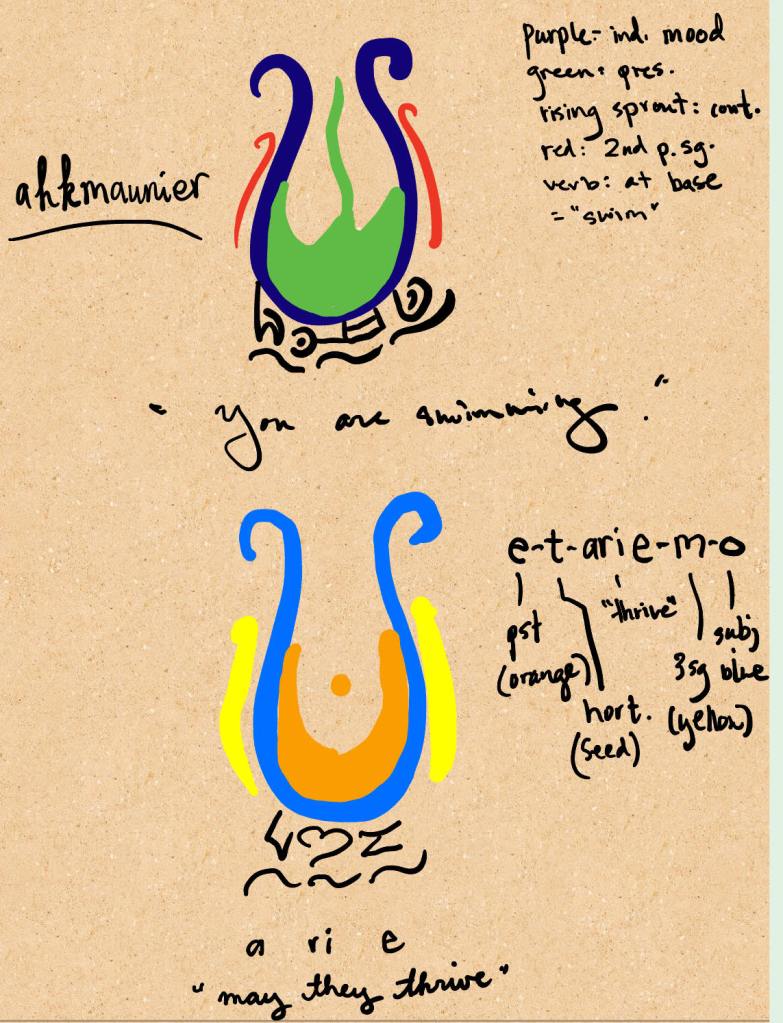 purple- ind. mood
green: pres.
rising sprout: cont.
red: 2nd p. sg.
verb: at base
= "swim"
ahkmaunier
"you are swimming."
e-t-arie-m-o
"thrive"
pst
subj
(orange)
3sg blue
hort.
(yellow)
(seed)
a ri e
"may they thrive"